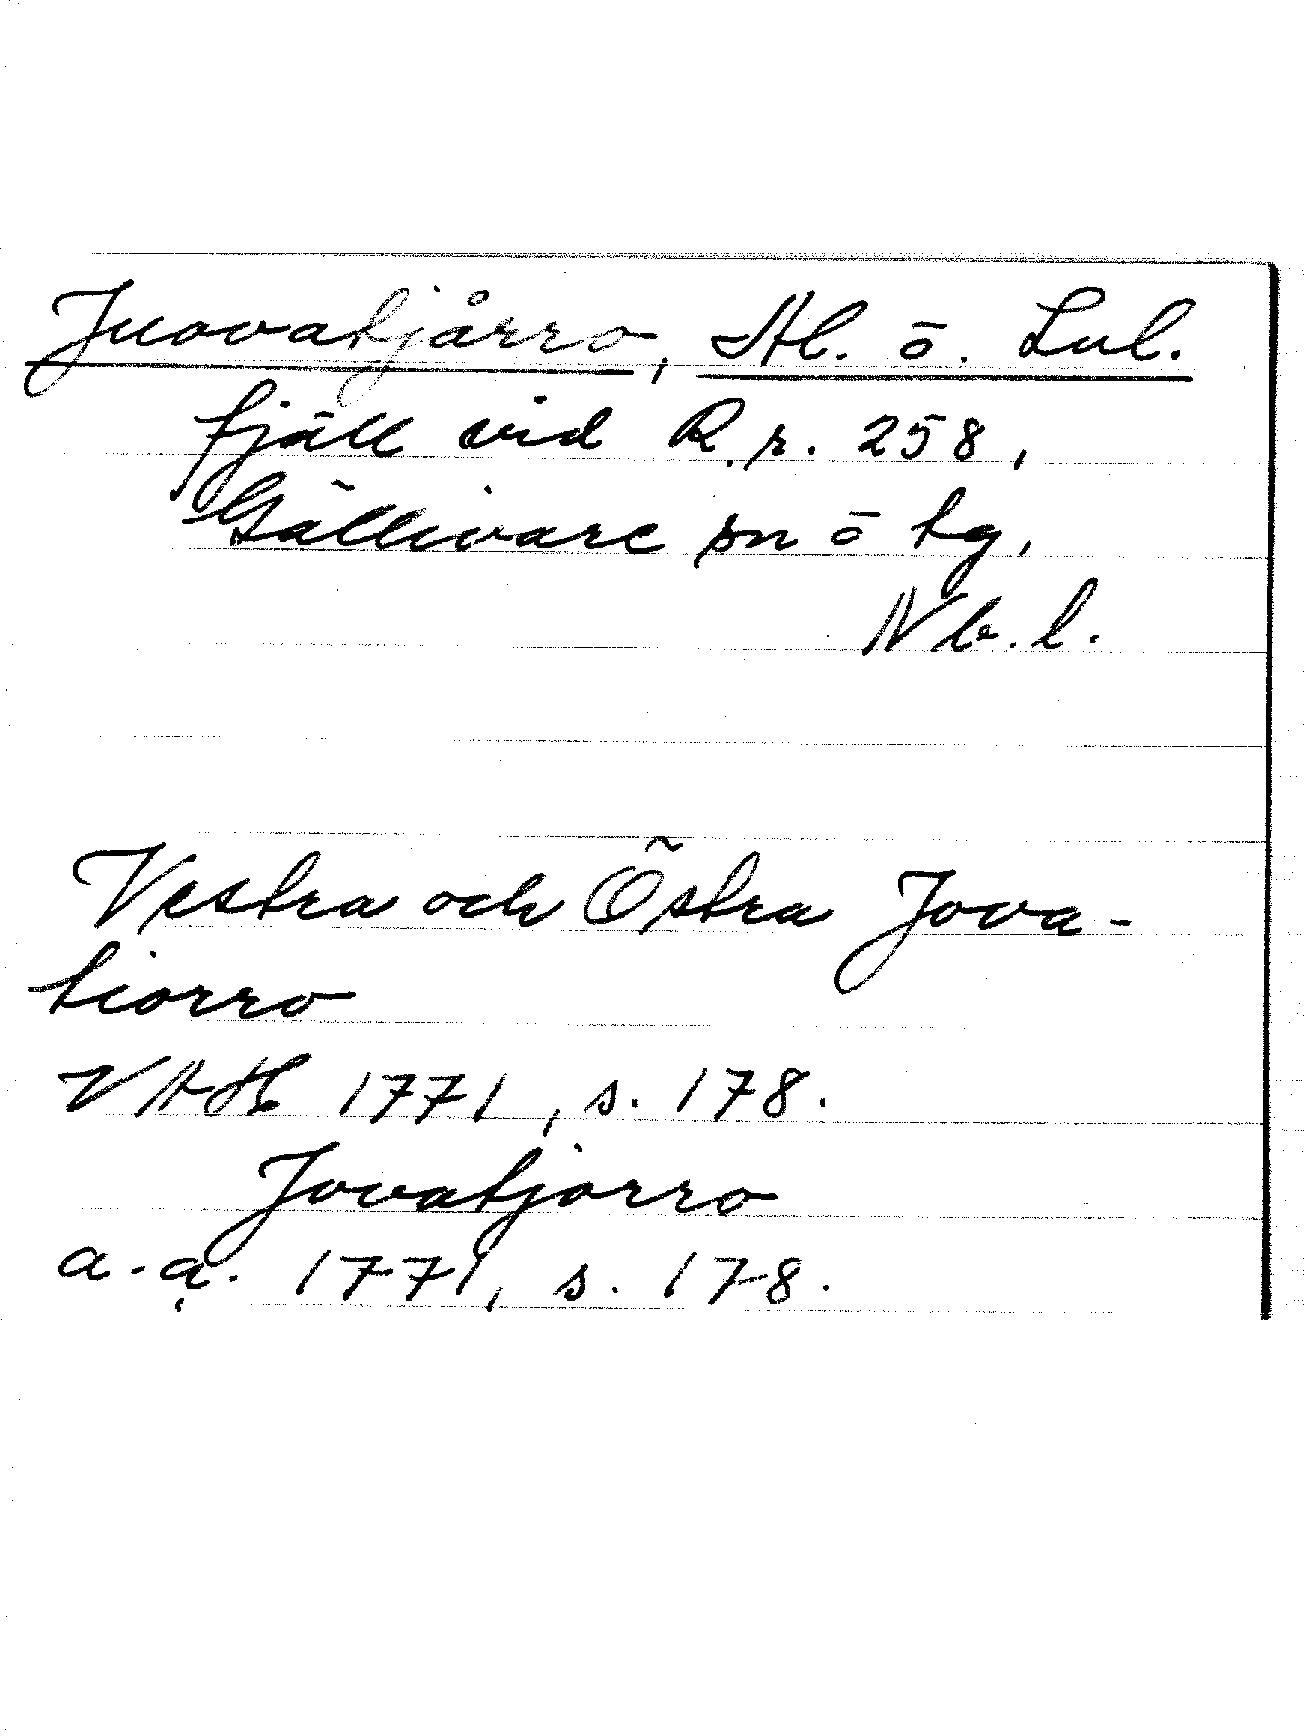 Juovatjårro, St. ö. Lul.
fjäll vid R.r. 258,
Gällivare sn ö tg,
Nb.l.
Vestra och Östra Jova-
tiorro
VAH 1771, s. 178.
Jovatjorro
a.a. 1771, s. 178.